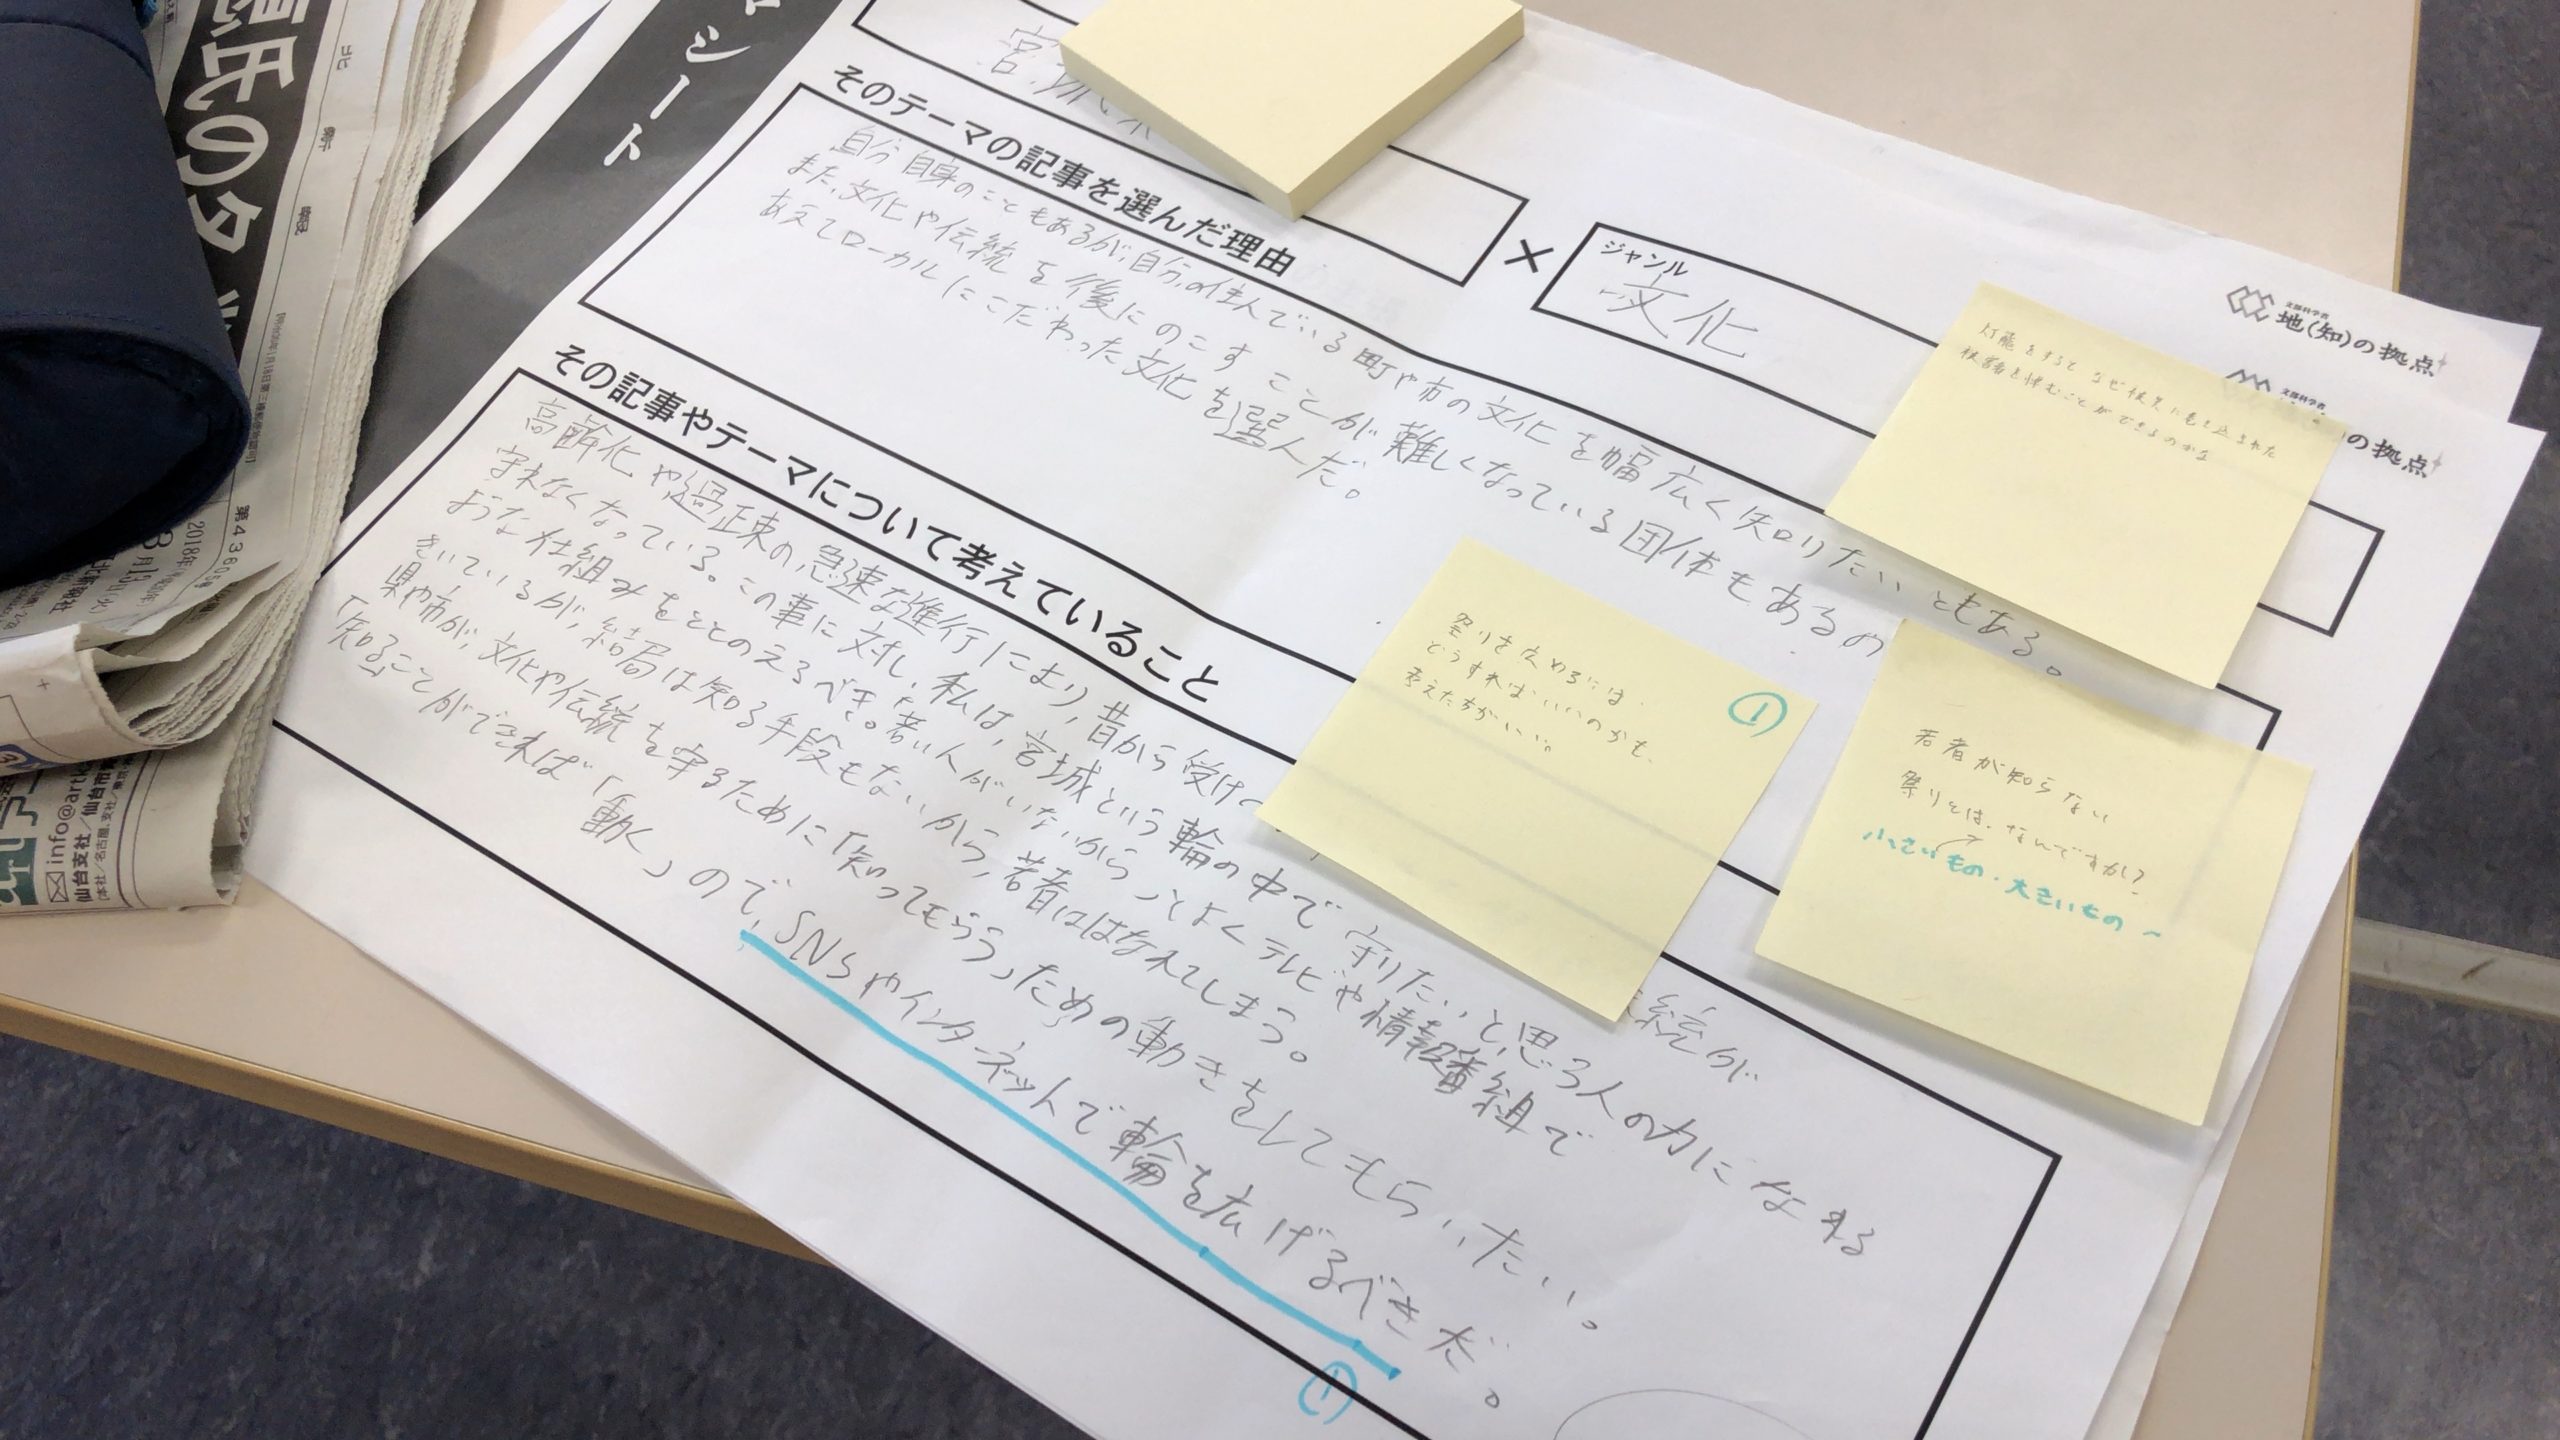 シート
宮城県
×
ジャンル
文化
文部科学省
地(知)の拠点
文部科学省
の拠点
そのテーマの記事を選んだ理由
自分自身のこともあるが、自分の住んでいる町や市の文化を幅広く知りたいともある。
また、文化や伝統を後にのこすことが難しくなっている団体もあるの
あえてローカルにこだわった文化を選んだ。
その記事やテーマについて考えていること
高齢化や過疎の急速な進行により、昔から受け 統が
守れなくなっている。この事に対し、私は、宮城という輪の中で守りたいと思う人の力になれる
ような仕組みをととのえるべき。若い人がいないから、とよくテレビや情報番組で
きいているが、結局は知る手段もないから、若者ははなれてしまう。
県や市が、文化や伝統を守るために「知ってもらう」ための動きをしてもらいたい。
「知る」ことができれば「動く」ので、SNSやインターネットで輪を広げるべきだ。
①
被害者を悼むことができるのかな
①
祭りを広めるには、
どうすればいいのかも、
考えた方がいい。
若者が知らない
祭りとは、なんですか?
小さいもの・大きいもの〜
氏のタ
第43605号
2018年
月13日(火)
info@artk
仙台支社/仙台市